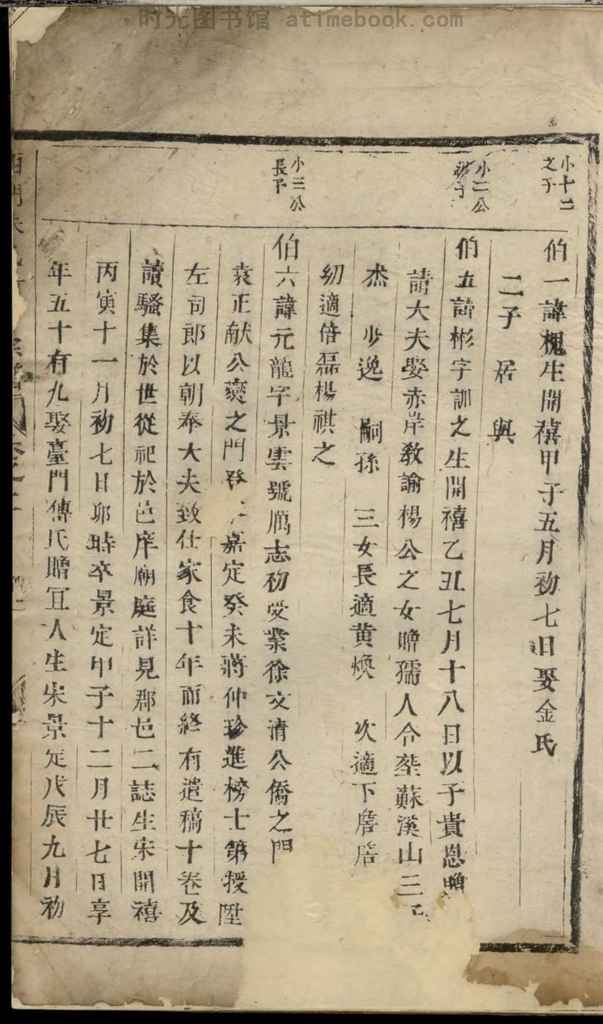 时光图书馆 atimebook.com
小十二
之子
伯一諱槐生開禧甲子五月初七日娶金氏
二子 居 與
小二公
子
伯五諱彬字訓之生開禧乙丑七月十八日以子貴恩贈
請大夫娶赤岸教諭楊公之女贈孺人合塟蘇溪山三子
杰 少逸 嗣孫 三女長適黄煥 次適下
幼適倍磊楊祺之
小三公
長子
伯六諱元龍字景雲號厲志初受業徐文清公僑之門
袁正献公燮之門登 嘉定癸未蔣仲珍進榜士第授陞
左司郎以朝奉大夫致仕家食十年而終有遺稿十卷及
讀騷集於世從祀於邑庠廟庭詳見郡邑二誌生宋開禧
丙寅十一月初七日卯時卒景定甲子十二月廿七日享
年五十有九娶臺門傅氏贈宜人生宋景定戊辰九月初